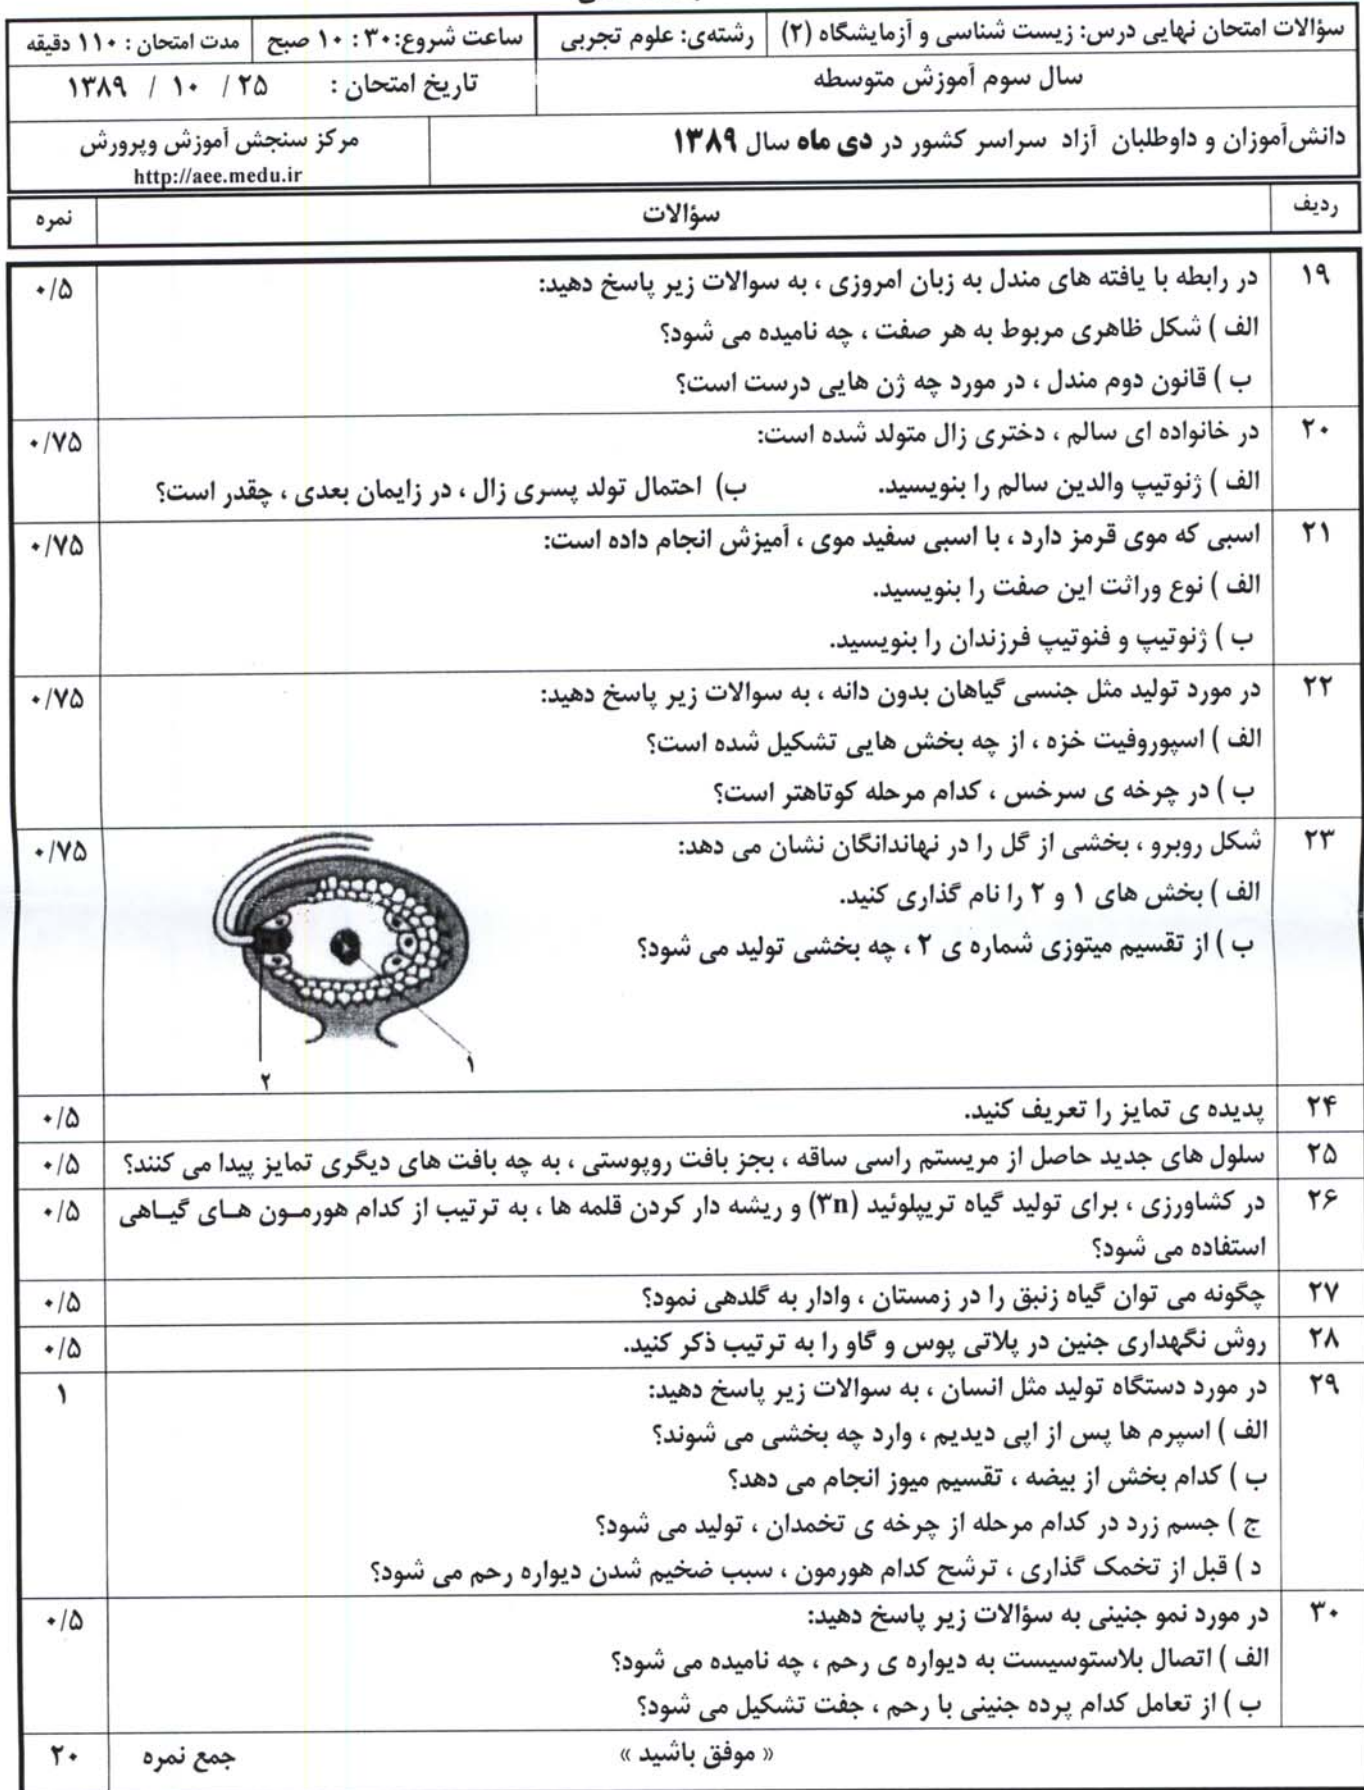 سؤالات امتحان نهایی درس: زیست شناسی و آزمایشگاه (۲) رشته‌ی: علوم تجربی ساعت شروع:۳۰ : ۱۰ صبح مدت امتحان : ۱۱۰ دقیقه
سال سوم آموزش متوسطه تاریخ امتحان : ۲۵ / ۱۰ / ۱۳۸۹
دانش‌آموزان و داوطلبان آزاد سراسر کشور در دی ماه سال ۱۳۸۹ مرکز سنجش آموزش وپرورش
http://aee.medu.ir
ردیف سؤالات نمره
۱۹ در رابطه با یافته های مندل به زبان امروزی ، به سوالات زیر پاسخ دهید: ۰/۵
الف ) شکل ظاهری مربوط به هر صفت ، چه نامیده می شود؟
ب ) قانون دوم مندل ، در مورد چه ژن هایی درست است؟
۲۰ در خانواده ای سالم ، دختری زال متولد شده است: ۰/۷۵
الف ) ژنوتیپ والدین سالم را بنویسید. ب) احتمال تولد پسری زال ، در زایمان بعدی ، چقدر است؟
۲۱ اسبی که موی قرمز دارد ، با اسبی سفید موی ، آمیزش انجام داده است: ۰/۷۵
الف ) نوع وراثت این صفت را بنویسید.
ب ) ژنوتیپ و فنوتیپ فرزندان را بنویسید.
۲۲ در مورد تولید مثل جنسی گیاهان بدون دانه ، به سوالات زیر پاسخ دهید: ۰/۷۵
الف ) اسپوروفیت خزه ، از چه بخش هایی تشکیل شده است؟
ب ) در چرخه ی سرخس ، کدام مرحله کوتاهتر است؟
۲۳ شکل روبرو ، بخشی از گل را در نهاندانگان نشان می دهد: ۰/۷۵
الف ) بخش های ۱ و ۲ را نام گذاری کنید.
ب ) از تقسیم میتوزی شماره ی ۲ ، چه بخشی تولید می شود؟
۱
۲
۲۴ پدیده ی تمایز را تعریف کنید. ۰/۵
۲۵ سلول های جدید حاصل از مریستم راسی ساقه ، بجز بافت روپوستی ، به چه بافت های دیگری تمایز پیدا می کنند؟ ۰/۵
۲۶ در کشاورزی ، برای تولید گیاه تریپلوئید (۳n) و ریشه دار کردن قلمه ها ، به ترتیب از کدام هورمون های گیاهی ۰/۵
استفاده می شود؟
۲۷ چگونه می توان گیاه زنبق را در زمستان ، وادار به گلدهی نمود؟ ۰/۵
۲۸ روش نگهداری جنین در پلاتی پوس و گاو را به ترتیب ذکر کنید. ۰/۵
۲۹ در مورد دستگاه تولید مثل انسان ، به سوالات زیر پاسخ دهید: ۱
الف ) اسپرم ها پس از اپی دیدیم ، وارد چه بخشی می شوند؟
ب ) کدام بخش از بیضه ، تقسیم میوز انجام می دهد؟
ج ) جسم زرد در کدام مرحله از چرخه ی تخمدان ، تولید می شود؟
د ) قبل از تخمک گذاری ، ترشح کدام هورمون ، سبب ضخیم شدن دیواره رحم می شود؟
۳۰ در مورد نمو جنینی به سؤالات زیر پاسخ دهید: ۰/۵
الف ) اتصال بلاستوسیست به دیواره ی رحم ، چه نامیده می شود؟
ب ) از تعامل کدام پرده جنینی با رحم ، جفت تشکیل می شود؟
« موفق باشید » جمع نمره ۲۰